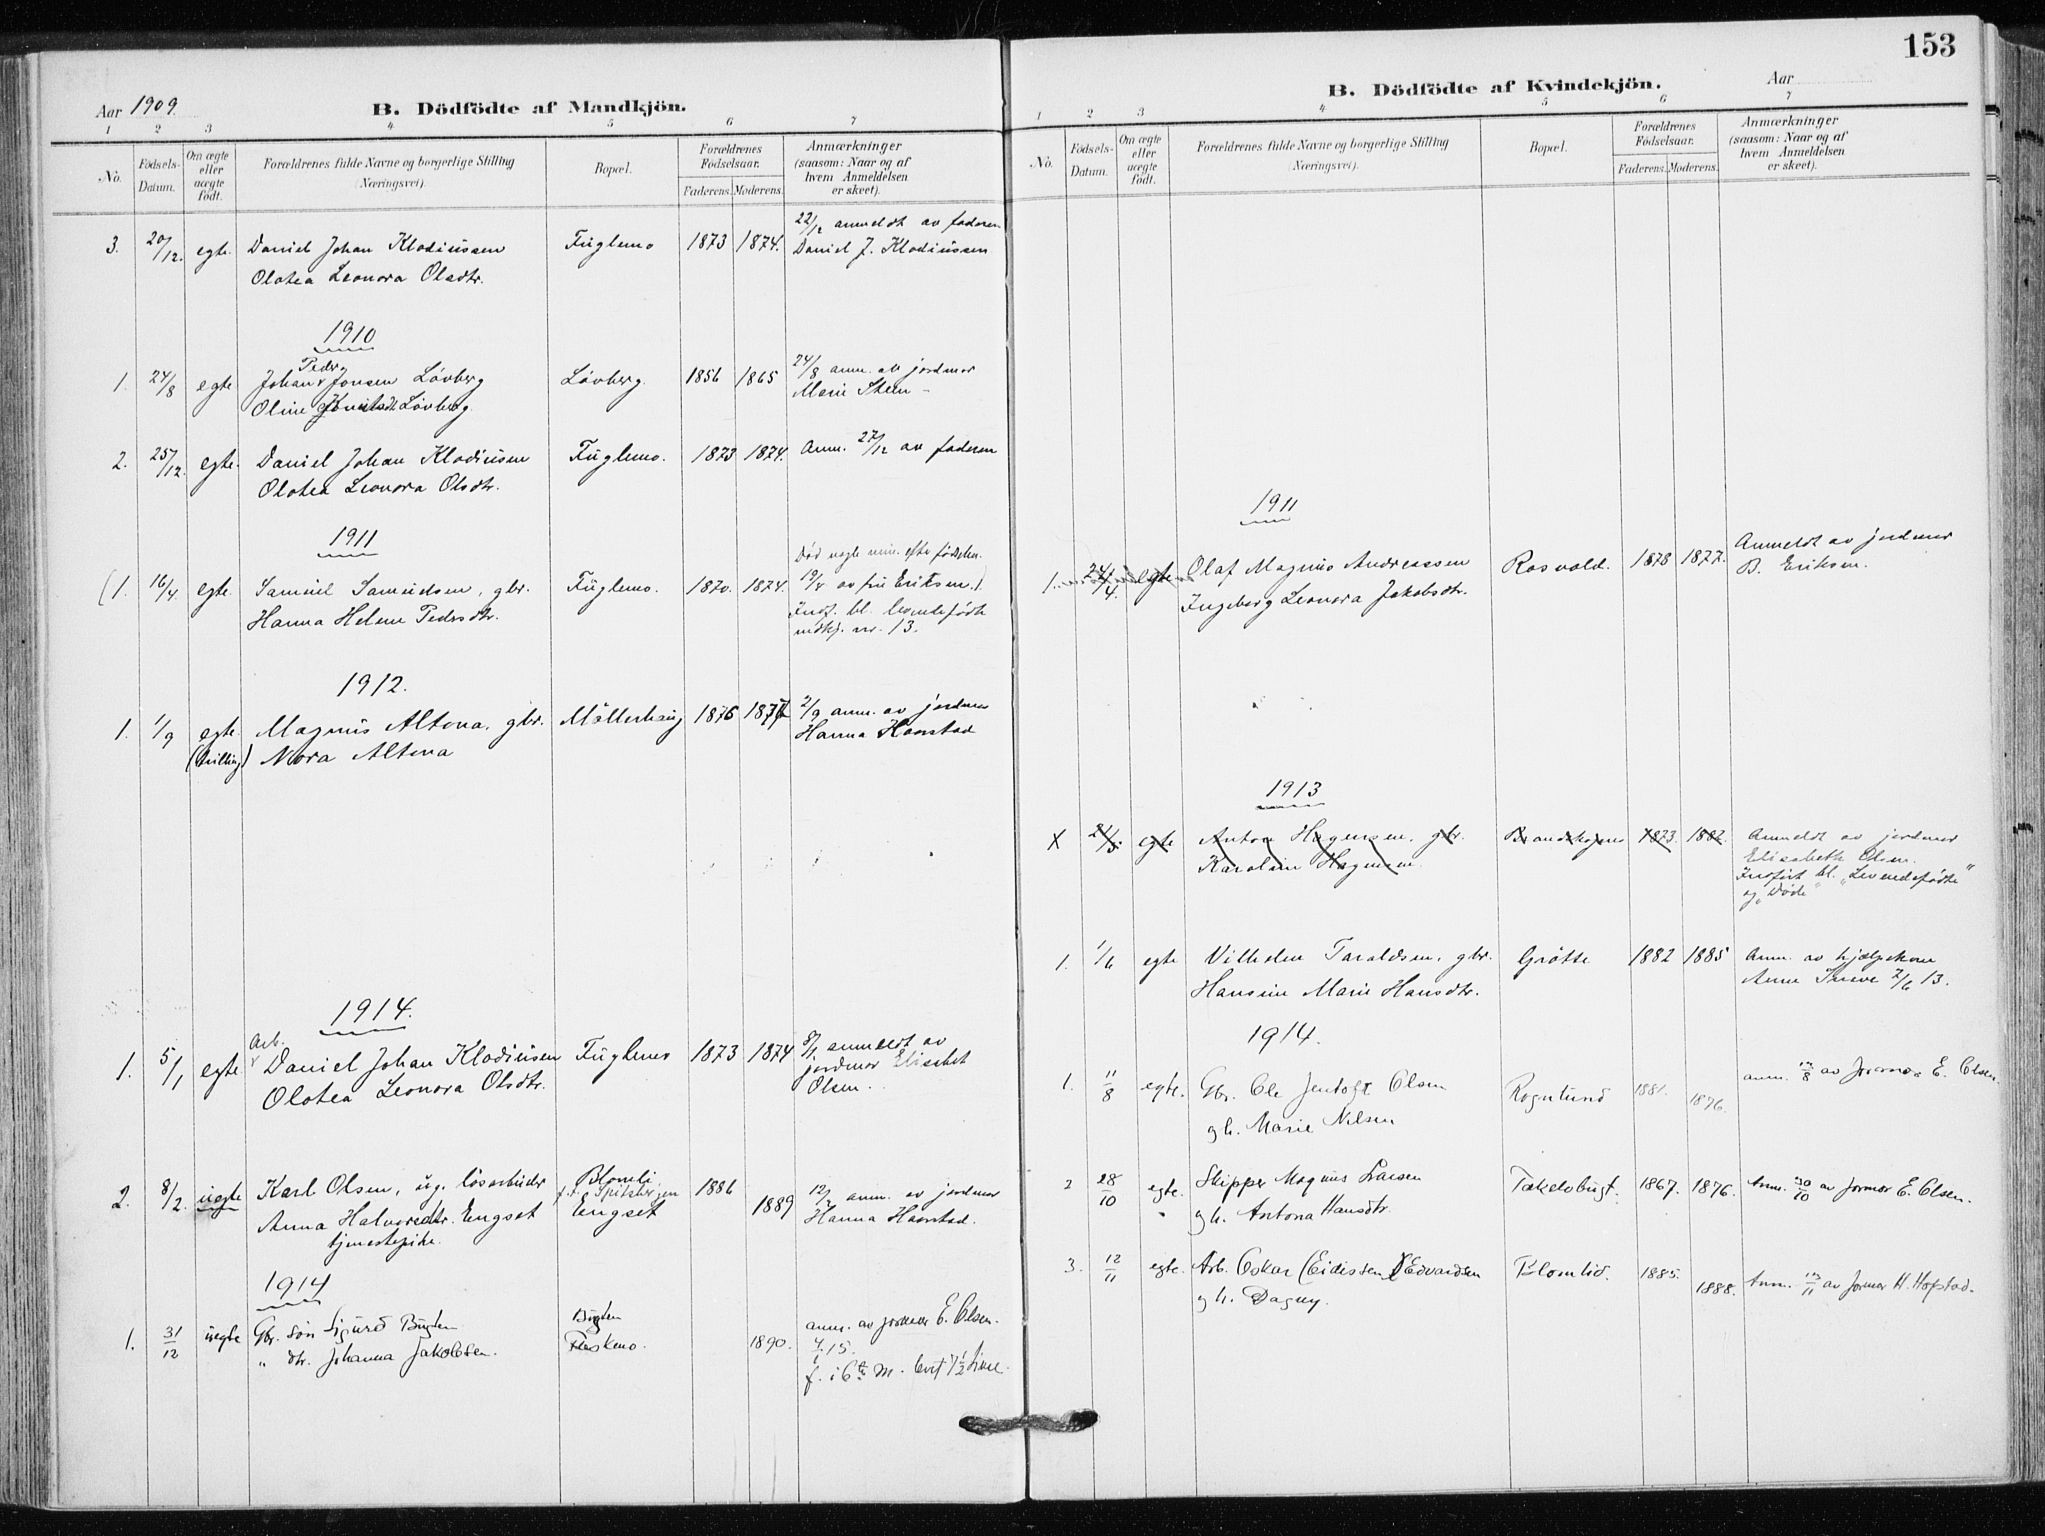 153
Aar 1909.
B. Dödfödte af Mandkjön.
1 2 3 4 5 6 7
No.
Födsels-Datum.
Om ægte eller uægte födt.
Forældrenes fulde Navne og borgerlige Stilling (Næringsvei).
Bopæl.
Forældrenes Födselsaar.
Faderens. Moderens.
Anmærkninger (saasom: Naar og af hvem Anmeldelsen er skeet).
3. 20/12. egte. Daniel Johan Klodiussen Fuglemo 1873 1874. 22/12 anmeldt av faderen
Olotea Leonora Olsdtr. Daniel J. Klodiussen
1910
Peder
1. 24/8 egte Johan Jonsen Lövberg Lövberg. 1856 1865 24/8 anm. av jordmor
Oline Lövberg Marie
2. 25/12. egte. Daniel Johan Klodiusen Fuglemo. 1873 1874. Anm. 27/12 av faderen
Olotea Leonora Olsdtr.
1911
Död nogle min. efter födselen.
(1. 16/4 egte. Samuel Samuelsen, gbr. Fuglemo. 1870. 1874. av fru Eriksen.)
Hanna Helene Pedersdtr. Indf. bl. levendefödte
mdkj. nr. 13.
1912.
1. 1/9 egte Magnus Altona, gbr. Möllerhaug 1876 2/9 anm. av jordmor
(tvilling) Nora Altona Hanna Haarstad
1914.
Arb.
1. 5/1 egte Daniel Johan Klodiusen Fuglemo 1873 1874 8/1 anmeldt av
Olotea Leonora Olsdtr. jordmor Elisabet
Olsen.
2. 8/2. uegte Karl Olsen, ug. lösarbeider Blomli 1886 12/2 anm. av jordmor
f.t. Spitsbergen
Anna Halvorsdtr. Engset Engset 1889 Hanna Haarstad.
tjenestepike.
1914
1. 31/12 uegte Gbr. sön Sigurd Bugten Bugten anm. av jordmor E. Olsen.
" dtr. Johanna Jakobsen. Fleskmo. 1890. 4/1 15.
f. i 6te M.
B. Dödfödte af Kvindekjön.
Aar
1 2 3 4 5 6 7
No.
Födsels-Datum.
Om ægte eller uægte födt.
Forældrenes fulde Navne og borgerlige Stilling (Næringsvei).
Bopæl.
Forældrenes Födselsaar.
Faderens. Moderens.
Anmærkninger (saasom: Naar og af hvem Anmeldelsen er skeet).
1911
1. 24/4. egte Olaf Magnus Andreassen Rosvold. 1878 1877. Anmeldt av jordmor
Ingeborg Leonora Jakobsdtr. B. Eriksen.
1913
X 21/5 egte Anton Hagensen, gbr. Brandskogmo 1873. 1882. Anmeldt av jordmor
Karoline Hagensen. Elisabeth Olsen.
Indfört bl. "Levendefödte"
og "Döde"
1. 1/6 egte Vilhelm Taraldsen, gbr. Gråtte 1882 1885 Anm. av hjælpekone
Hansine Marie Hansdtr. Anne 2/6 13.
1914.
1. 11/8 egte. Gbr. Ole Jentoft Olsen Rognlund 1881. 1876. anm. av Jormor E. Olsen.
g h. Marie Nilsen
2 28/10 egte. Skipper Magnus Larsen Takelvbugt. 1867. 1876. Anm. 30/10 av Jormor E. Olsen.
g h. Antona Hansdtr.
3. 12/11 egte. Arb. Oskar (Eidissen) Edvardsen Blomlid. 1885. 1888. Anm. 13/11 av Jormor H. Hofstad.
g h. Dagny.